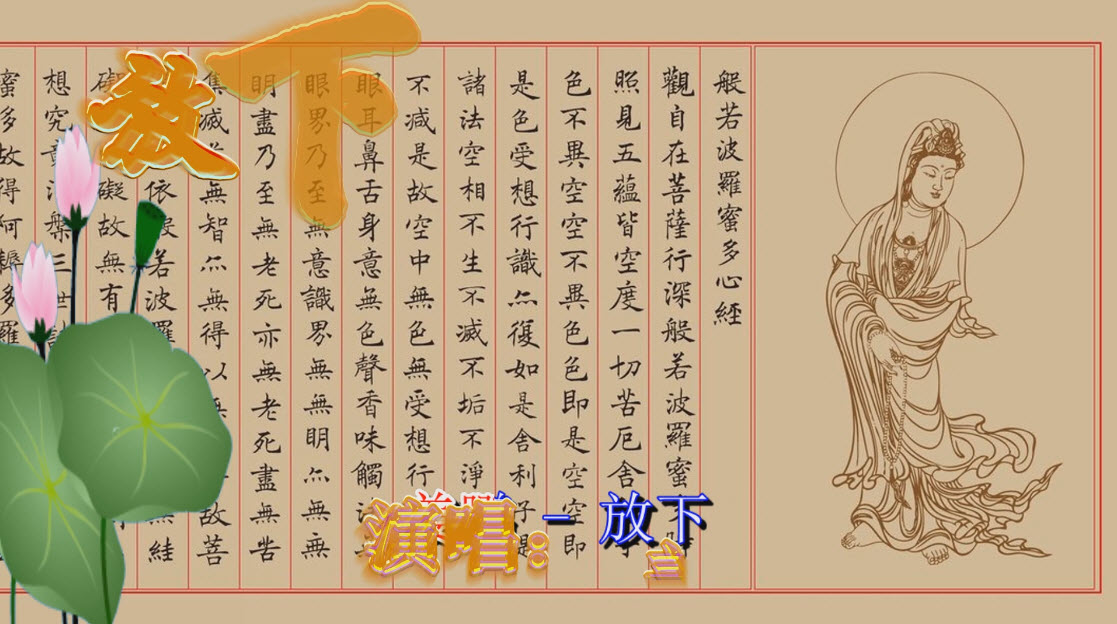 放下
般若波羅蜜多心經
觀自在菩薩行深般若波羅蜜
照見五蘊皆空度一切苦厄舍
色不異空空不異色色即是空空即
是色受想行識亦復如是舍利子是
諸法空相不生不滅不垢不淨
不减是故空中無色無受想行
眼耳鼻舌身意無色聲香味觸法
眼界乃至無意識界無無明亦無無
明盡乃至無老死亦無老死盡無苦
集滅道無智亦無得以無 故菩
依般若波羅 無絓
礙 礙故無有
想究竟涅槃三世諸
蜜多故得阿耨多羅
演唱: - 放下